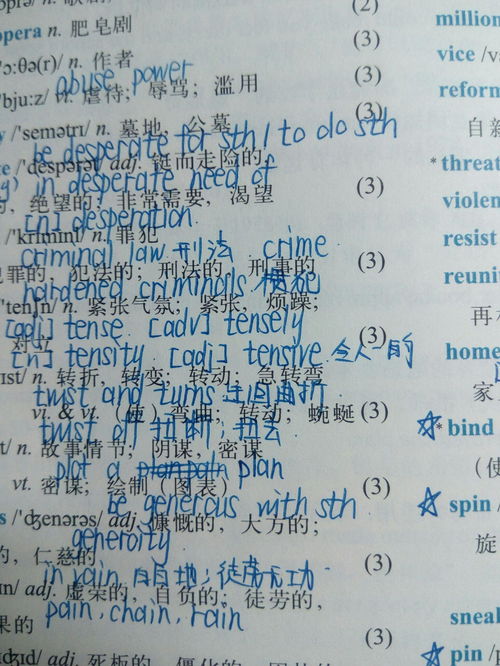 (2)
opera n. 肥皂剧
(3)
/'ɔ:θə(r)/ n. 作者
(3)
abuse power
/'bju:z/ vt. 虐待；辱骂；滥用
(3)
/'semətrɪ/ n. 墓地，公墓
be desperate for sth / to do sth
/'despərət/ adj. 铤而走险的，
in desperate need of
(3)
绝望的；非常需要，渴望
[n] desperation
/'krɪmɪnl/ n. 罪犯
(3)
criminal law 刑法 crime
犯罪的，犯法的；刑法的，刑事的
hardened criminals 惯犯
/'tenʃn/ n. 紧张气氛；紧张，烦躁；
[adj] tense [adv] tensely
(3)
对立
[n] tensity [adj] tensive 令人~的
n. 转折，转变；转动；急转弯
twist and turns 迂回曲折
vi. & vt. (使) 弯曲；转动；蜿蜒 (3)
twist off 扭断；扭去
n. 故事情节；阴谋，密谋
plot a plan
vt. 密谋；绘制（图表）
(3)
be generous with sth
/'dʒenərəs/ adj. 慷慨的，大方的；
generoity
的，仁慈的
(3)
in vain 白白地；徒劳无功
adj. 虚荣的，自负的；徒劳的，
果的
pain, chain, rain
(3)
adj. 死板的，僵化的，
million
vice
reform
自新
* threat
violen
resist
reuni
再
home
家
☆* bind
(使
☆ spin
旋
sneak
☆ pin